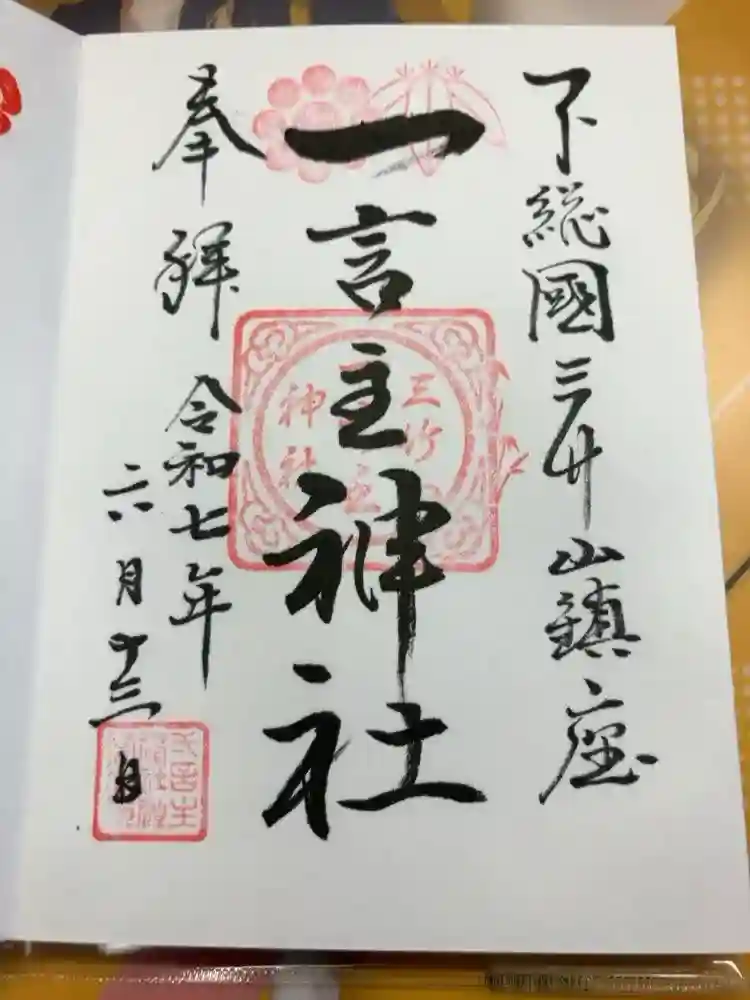 下総國三竹山鎮座
一言主神社
奉拝
令和七年
六月十三日
三竹
主
神社